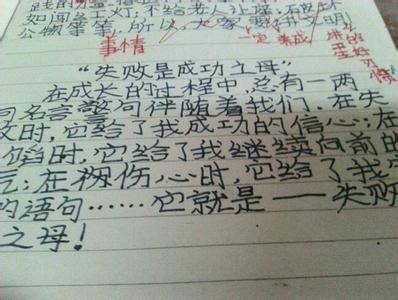 如闯红灯、不给老人让座、破坏
公物等等,所以,大家要讲文明
事情
一定 养成
讲卫生的好习惯
“失败是成功之母”
在成长的过程中,总有一两
句名言警句伴随着我们。在失
败时,它给了我成功的信心;在
馅时,它给了我继续向前的
气;在我伤心时,它给了我
的语句……它就是——失败
之母!